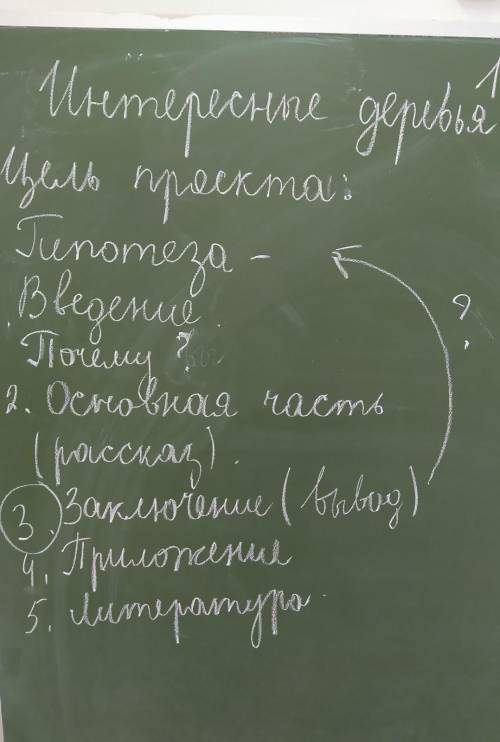 1
Интересные деревья
Цель проекта:
Гипотеза -
Введение.
Почему?
?
2. Основная часть
(рассказ).
3. Заключение (вывод)
4. Приложения
5. Литература